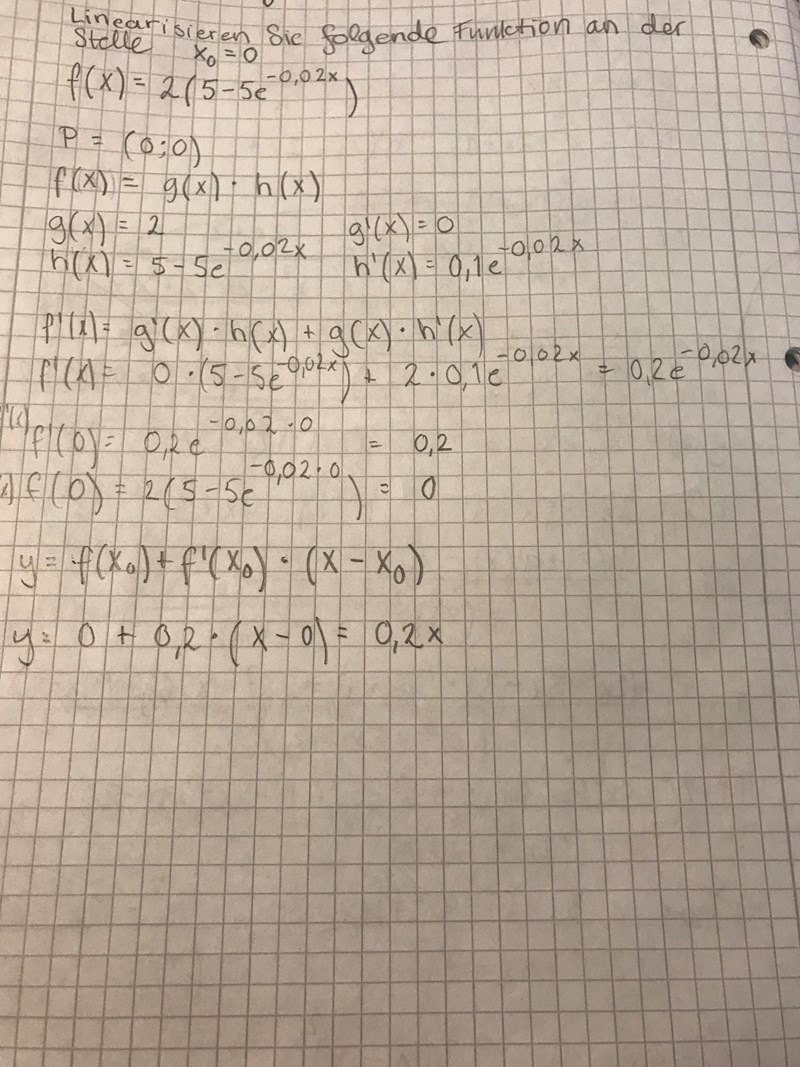 Linearisieren Sie folgende Funktion an der
Stelle x₀ = 0
f(x) = 2(5-5e^-0,02x)
P = (0;0)
f(x) = g(x) · h(x)
g(x) = 2 g'(x) = 0
h(x) = 5-5e^-0,02x h'(x) = 0,1e^-0,02x
f'(x) = g'(x) · h(x) + g(x) · h'(x)
f'(x) = 0 · (5-5e^-0,02x) + 2 · 0,1e^-0,02x = 0,2e^-0,02x
f'(0) = 0,2e^-0,02·0 = 0,2
f(0) = 2(5-5e^-0,02·0) = 0
y = f(x₀) + f'(x₀) · (x - x₀)
y = 0 + 0,2 · (x - 0) = 0,2x